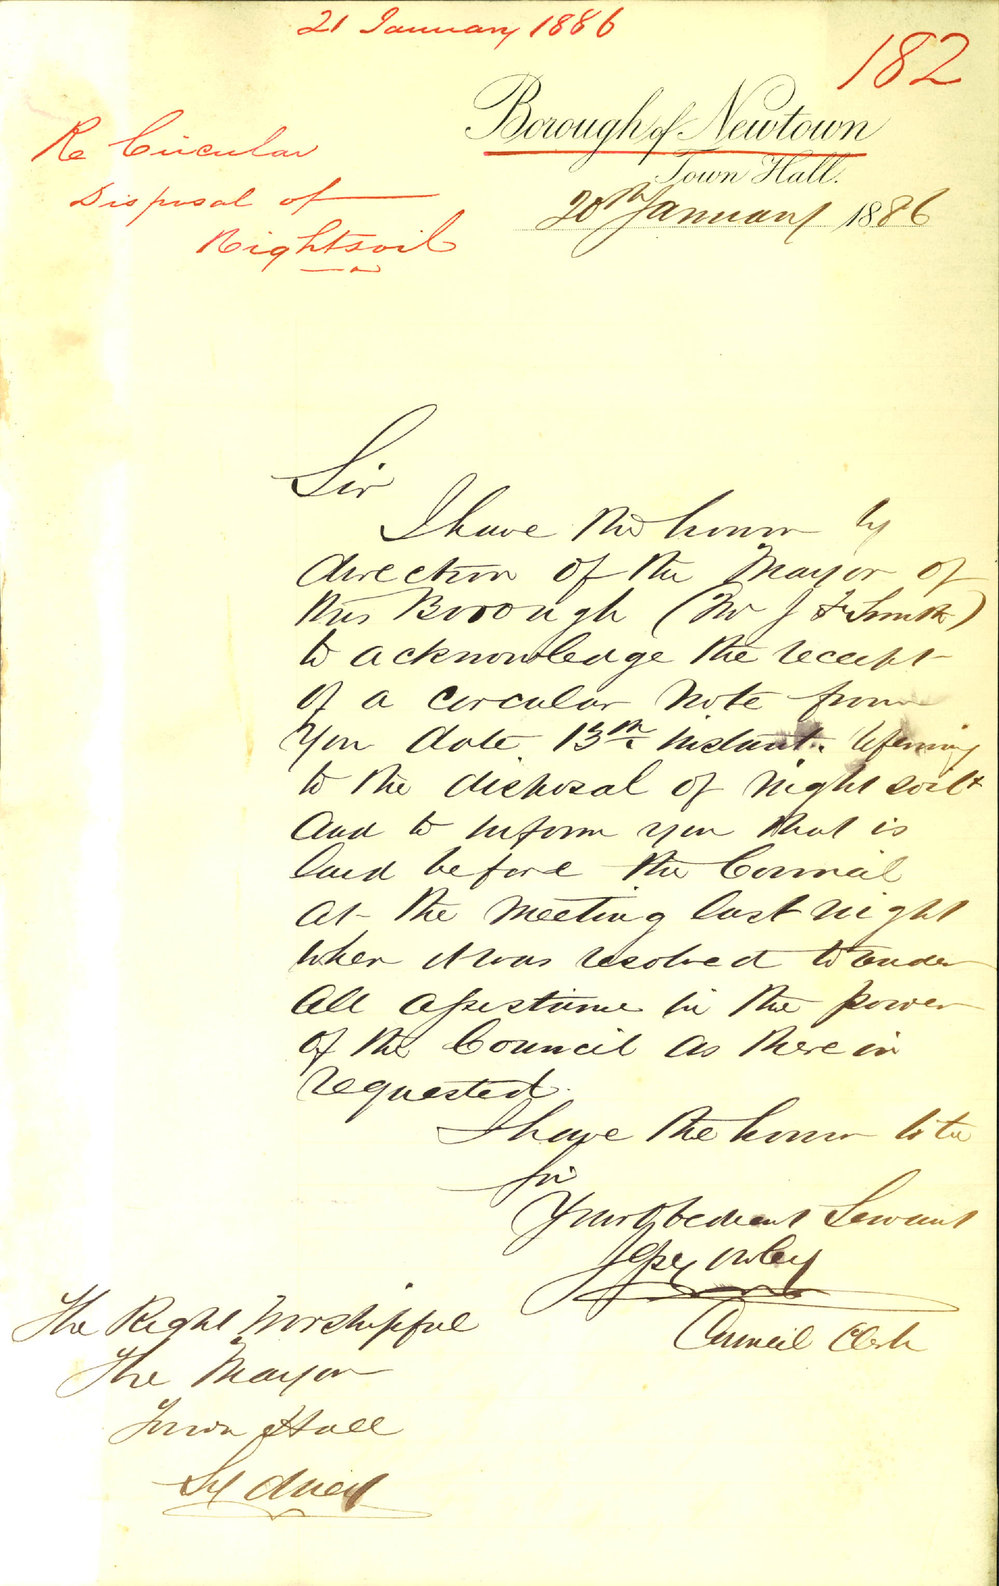 21 January 1886
182
Re Circular
Disposal of
Nightsoil
Borough of Newtown
Town Hall.
20th January 1886
Sir
I have the honor by
direction of the Mayor of
this Borough (Mr J F Smith)
to acknowledge the receipt
of a circular note from
you date 13th instant. referring
to the disposal of night soil
and to inform you that is
laid before the Council
at the meeting last night
when it was resolved to render
all assistance in the power
of the Council as therein
requested.
I have the honor to be
Sir
Your Obedient Servant
Council Clerk
The Right Worshipful
The Mayor
Town Hall
Sydney